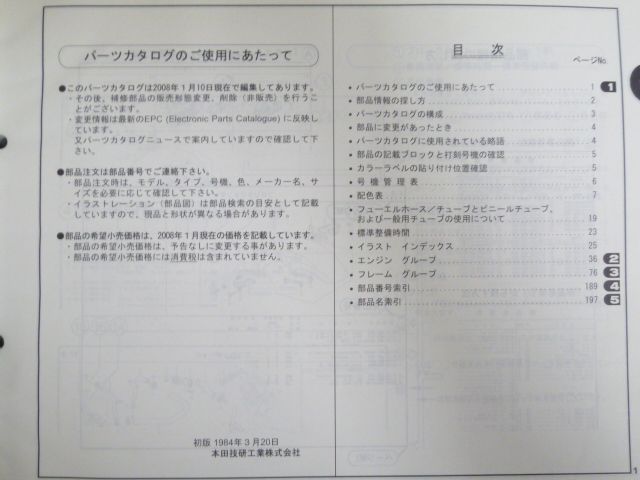 パーツカタログのご使用にあたって
●このパーツカタログは2008年1月10日現在で編集してあります。
・その後、補修部品の販売形態変更、削除（非販売）を行うこ
とがございます。
・変更情報は最新のEPC (Electronic Parts Catalogue) に反映し
ています。
又パーツカタログニュースで案内していますので確認して下
さい。
●部品注文は部品番号でご連絡下さい。
・部品注文時は、モデル、タイプ、号機、色、メーカー名、サ
イズを必要に応じて確認して下さい。
・イラストレーション（部品図）は部品検索の目安として記載
していますので、現品と形状が異なる場合があります。
●部品の希望小売価格は、2008年1月現在の価格を記載しています。
・部品の希望小売価格は、予告なしに変更する事があります。
・部品の希望小売価格には消費税は含まれていません。
初版 1984年3月20日
本田技研工業株式会社
目 次
ページNo
• パーツカタログのご使用にあたって 1 1
• 部品情報の探し方 2
• パーツカタログの構成 3
• 部品に変更があったとき 4
• パーツカタログに使用されている略語 4
• 部品の記載ブロックと打刻号機の確認 5
• カラーラベルの貼り付け位置確認 5
• 号 機 管 理 表 6
• 配色表 7
• フューエルホース／チューブとビニールチューブ、
および一般用チューブの使用について 19
• 標準整備時間 23
• イラスト インデックス 25
• エンジン グループ 36 2
• フレーム グループ 76 3
• 部品番号索引 189 4
• 部品名索引 197 5
1